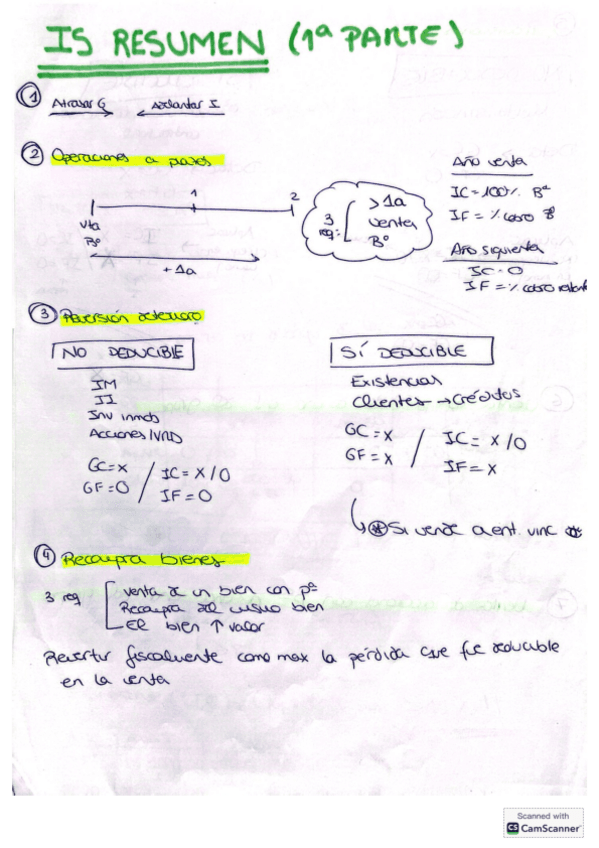 IS RESUMEN (1ª PARTE)
① Atrasar G Adelantar I
② Operaciones a plazos
1
2
Vta
Bº
+1a
3 req:
>1a
venta
Bº
Año venta
IC=100% Bº
IF=% cobro Bº
Año siguiente
IC=0
IF=% cobro
③ Reversión deterioro
NO DEDUCIBLE
IM
II
Inv inmob
Acciones/VRD
GC=X / IC=X/0
GF=0 / IF=0
SÍ DEDUCIBLE
Existencias
Clientes → Créditos
GC=X / IC=X/0
GF=X / IF=X
Si vende a ent. vinc
④ Recompra bienes
3 req
venta de un bien con pª
Recompra del mismo bien
El bien ↑ valor
Revertir fiscalmente como max la pérdida que fue deducible
en la venta
Scanned with
CS CamScanner